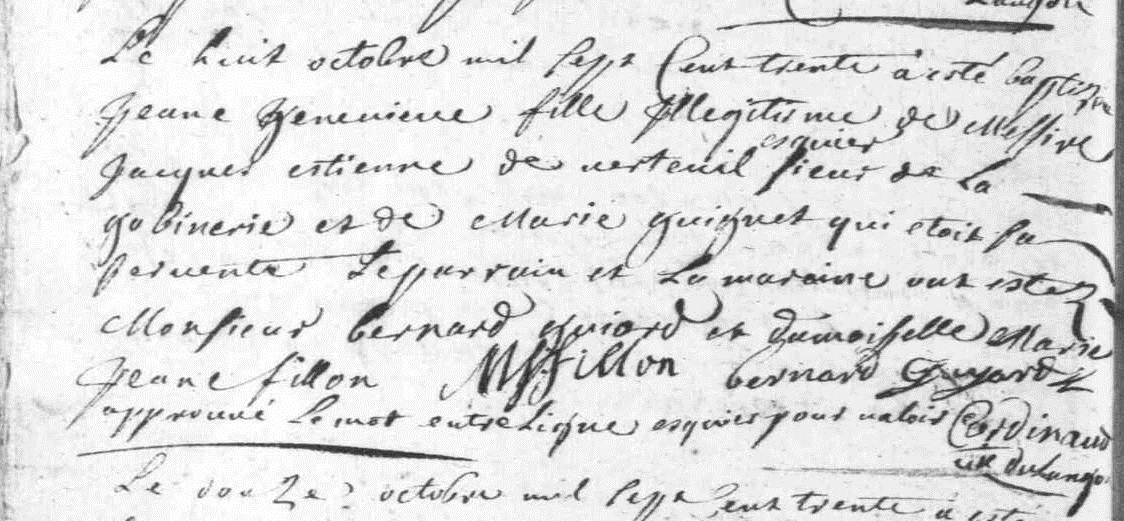 Le huit octobre mil sept cent trente à esté baptizée
Jeane Genevieve fille illegitisme de Messire
esquier
Jacques estienne de verteuil sieur de La
gobinerie et de Marie guignet qui etoit sa
servente Le parrain et La maraine ont estez
Monsieur bernard guiard et damoiselle Marie
Jeane fillon MJfillon bernard Guyard
approuvé Le mot entreLigne esquier pour valoir Cardinaud
Le douze octobre mil sept cent trente à est